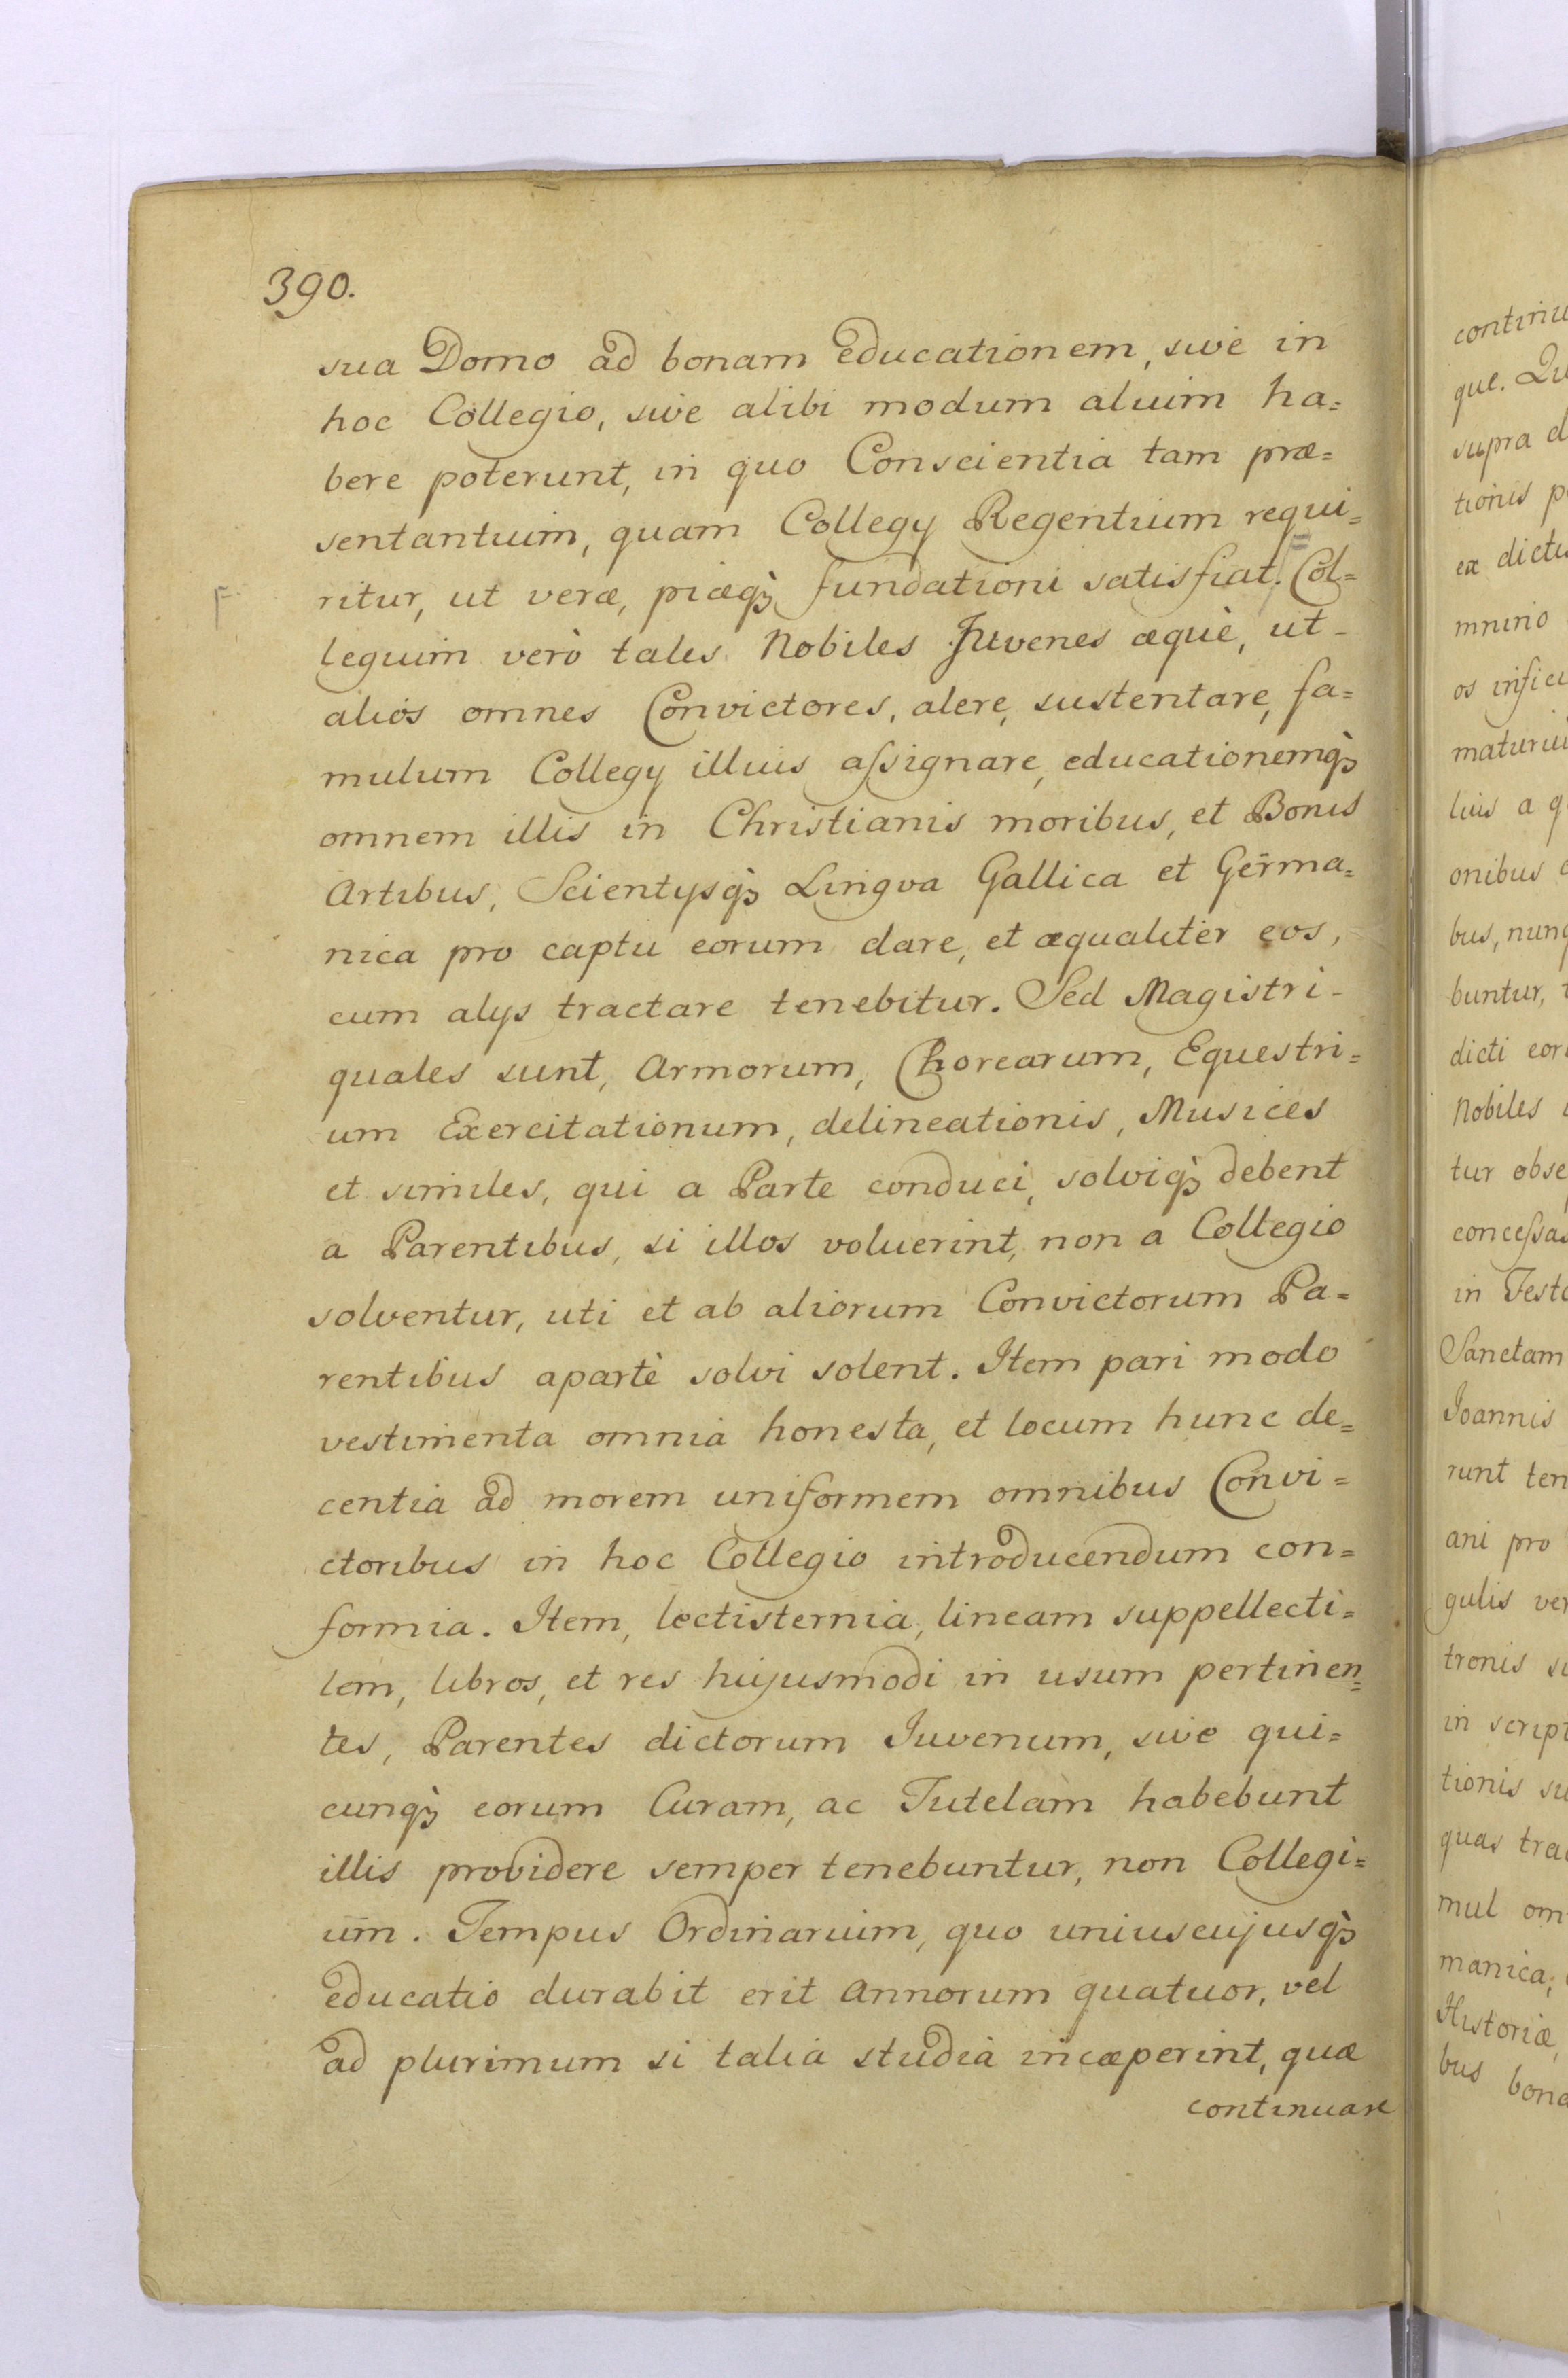 390.
sua Domo ad bonam Educationem, sive in
hoc Collegio, sive alibi modum alium ha=
bere poterunt, in quo Conscientia tam præ=
sentantium, quam Collegy Regentium requi=
ritur, ut veræ, piæq̀ꝫ fundationi satisfiat. Col=
F.
legium verò tales Nobiles Juvenes æquè, ut-
alios omnes Convictores, alere, sustentare, fa=
mulum Collegy illius aſsignare, educationemq̀ꝫ
omnem illis in Christianis moribus, et Bonis
Artibus, Scientysq̀ꝫ Lingva Gallica et Germa=
nica pro captu eorum dare, et æqualiter eos,
cum alys tractare tenebitur. Sed Magistri-
quales sunt, Armorum, Chorearum, Equestri=
um Exercitationum, delineationis, Musices
et similes, qui a Parte conduci, solviq̀ꝫ debent
a Parentibus, si illos voluerint, non a Collegio
solventur, uti et ab aliorum Convictorum Pa=
rentibus apartè solvi solent. Item pari modo
vestimenta omnia honesta, et locum hunc de=
centia ad morem uniformem omnibus Convi=
ctoribus in hoc Collegio introducendum con=
formia. Item, lectisternia, lineam suppellecti=
lem, libros, et res hujusmodi in usum pertinen=
tes, Parentes dictorum Iuvenum, sive qui=
cunq̀ꝫ eorum Curam, ac Tutelam habebunt
illis providere semper tenebuntur, non Collegi=
um. Tempus Ordinarium, quo uniuscujusq̀ꝫ
educatio durabit erit Annorum quatuor, vel
ad plurimum si talia studia incæperint, quæ
continuare
continu
que. Qu
supra d
tionis p
ex dictis
mnino
os infici
maturiu
lius a q
onibus
bus, nunq
buntur,
dicti eor
Nobiles
tur obse
conceſsas
in Testa
Sanctam
Joannis
runt ten
ani pro
gulis ver
tronis su
in script
tionis su
quas tra
mul om
manica,
Historiæ,
bus bona